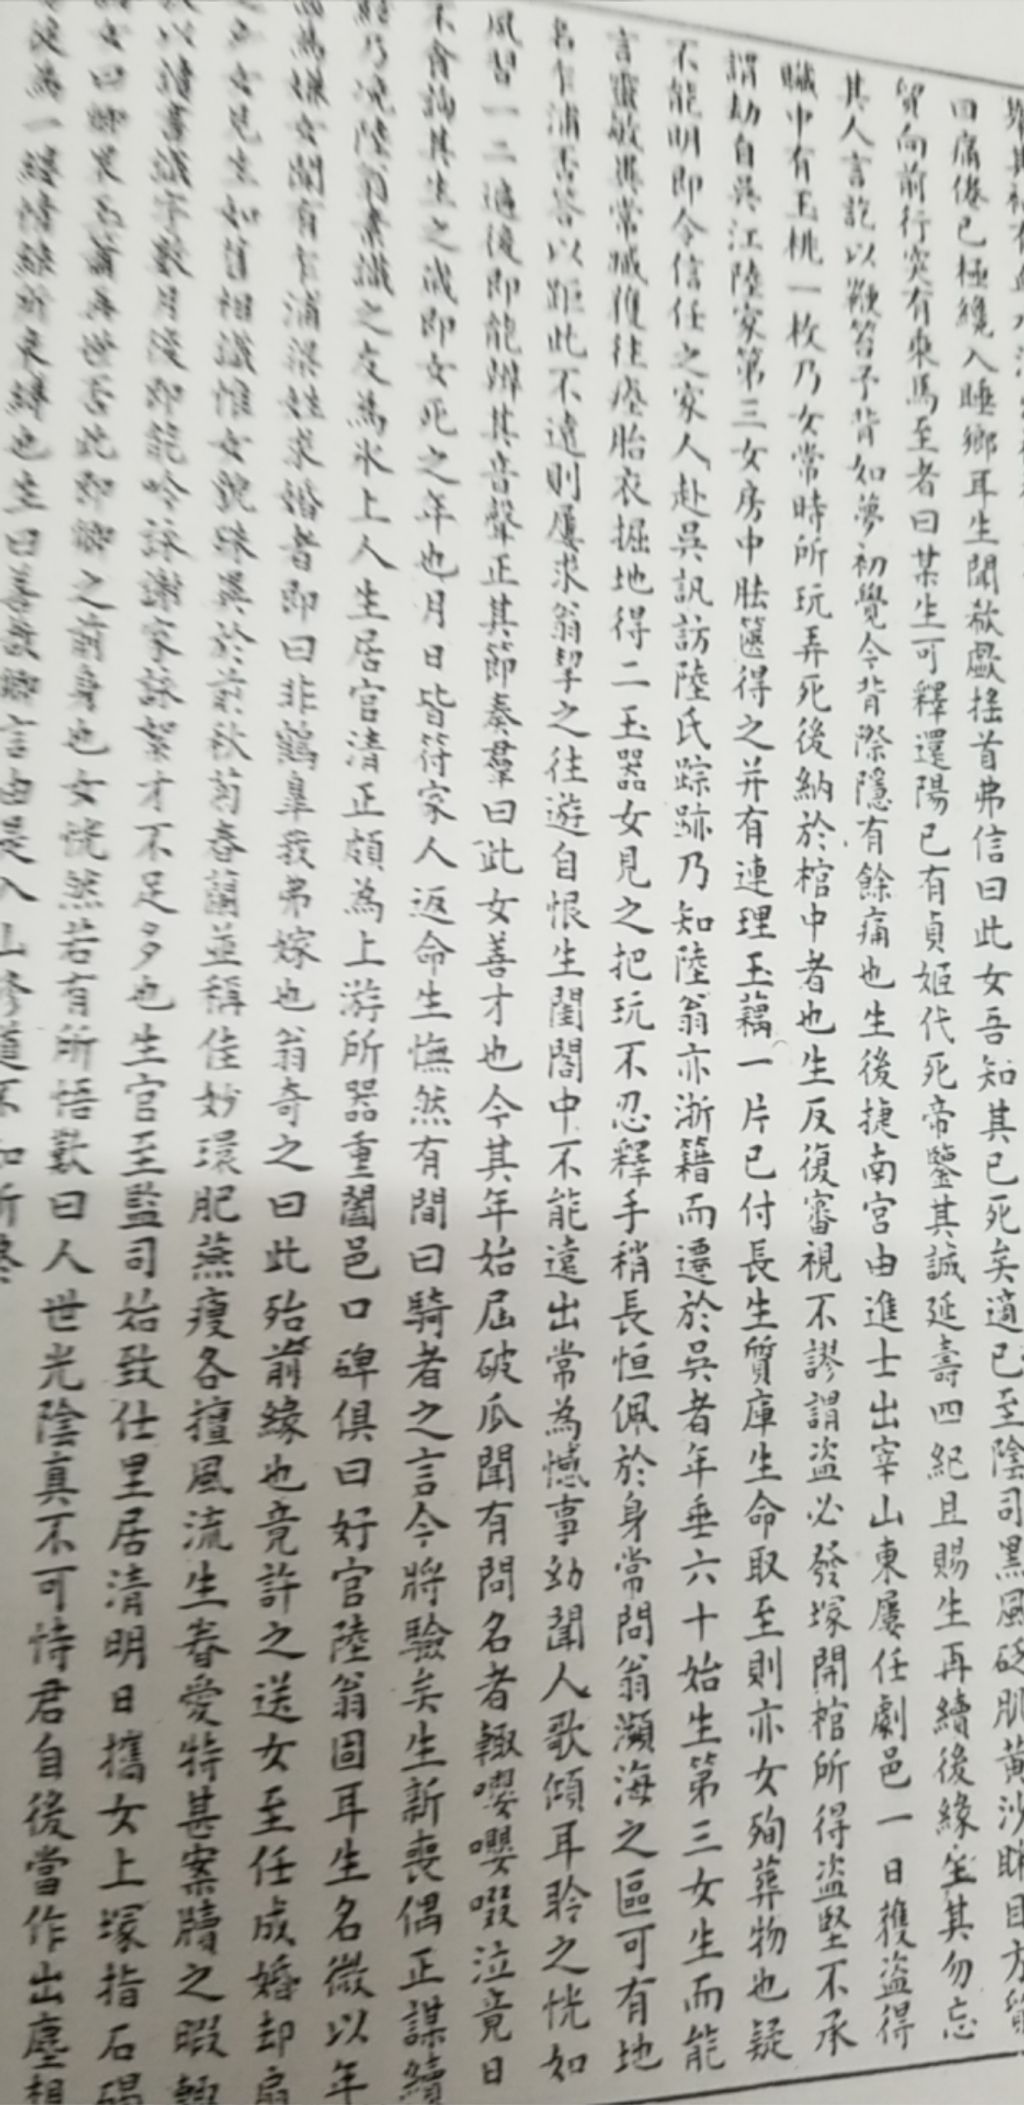 死矣適已至陰司黑風砭肌黃沙眯目方
四肩倦已極纔入睡鄉耳生聞欷歔搖首弗信曰此女吾知其已
貿而前行突有乘馬至者曰某生可釋還陽已有貞姬代死帝鑒其誠延壽四紀且賜生再續後緣生其勿忘
其人言訖以鞭笞予背如夢初覺今背際隱有餘痛也生後捷南宮由進士出宰山東屢任劇邑一日獲盜得
贓中有玉桃一枚乃女常時所玩弄死後納於棺中者也生反復審視不謬謂盜必發塚開棺所得盜堅不承
謂劫自吳江陸家第三女房中胠篋得之并有連理玉藕一片已付長生質庫生命取至則亦女殉葬物也疑
不能明即令信任之家人赴吳訊訪陸氏踪跡乃知陸翁亦浙籍而遷於吳者年垂六十始生第三女生而能
言靈敏異常臧獲往瘞胎衣掘地得二玉器女見之把玩不忍釋手稍長恒佩於身常問翁瀕海之區可有地
名乍浦否答以距此不遠則屢求翁挈之往遊自恨生閨閤中不能遠出常為憾事幼聞人歌傾耳聆之恍如
風習一二遍後即能辨其音聲正其節奏羣曰此女善才也今其年始屆破瓜聞有問名者輒嚶嚶啜泣竟日
不食詢其生之歲即女死之年也月日皆符家人返命生憮然有間曰騎者之言今將驗矣生新喪偶正謀續
乃浼陸翁素識之友為氷上人生居官清正頗為上游所器重闔邑口碑俱曰好官陸翁固耳生名微以年
為嫌女聞有乍浦梁姓求婚者即曰非鶴臯我弗嫁也翁奇之曰此殆前緣也竟許之送女至任成婚却扇
女見生如舊相識惟女貌殊異於前秋菊春蘭並稱佳妙環肥燕瘦各擅風流生眷愛特甚案牘之暇輒
以讀書識字數月後即能吟詠謝家詠絮才不足多也生官至監司始致仕里居清明日攜女上塚指石碣
女曰卿畏否蕭再世否此即卿之前身也女恍然若有所悟歎曰人世光陰真不可恃君自後當作出塵想
為一縷情絲所束縛也生曰善哉卿言由是入山修道不知所終